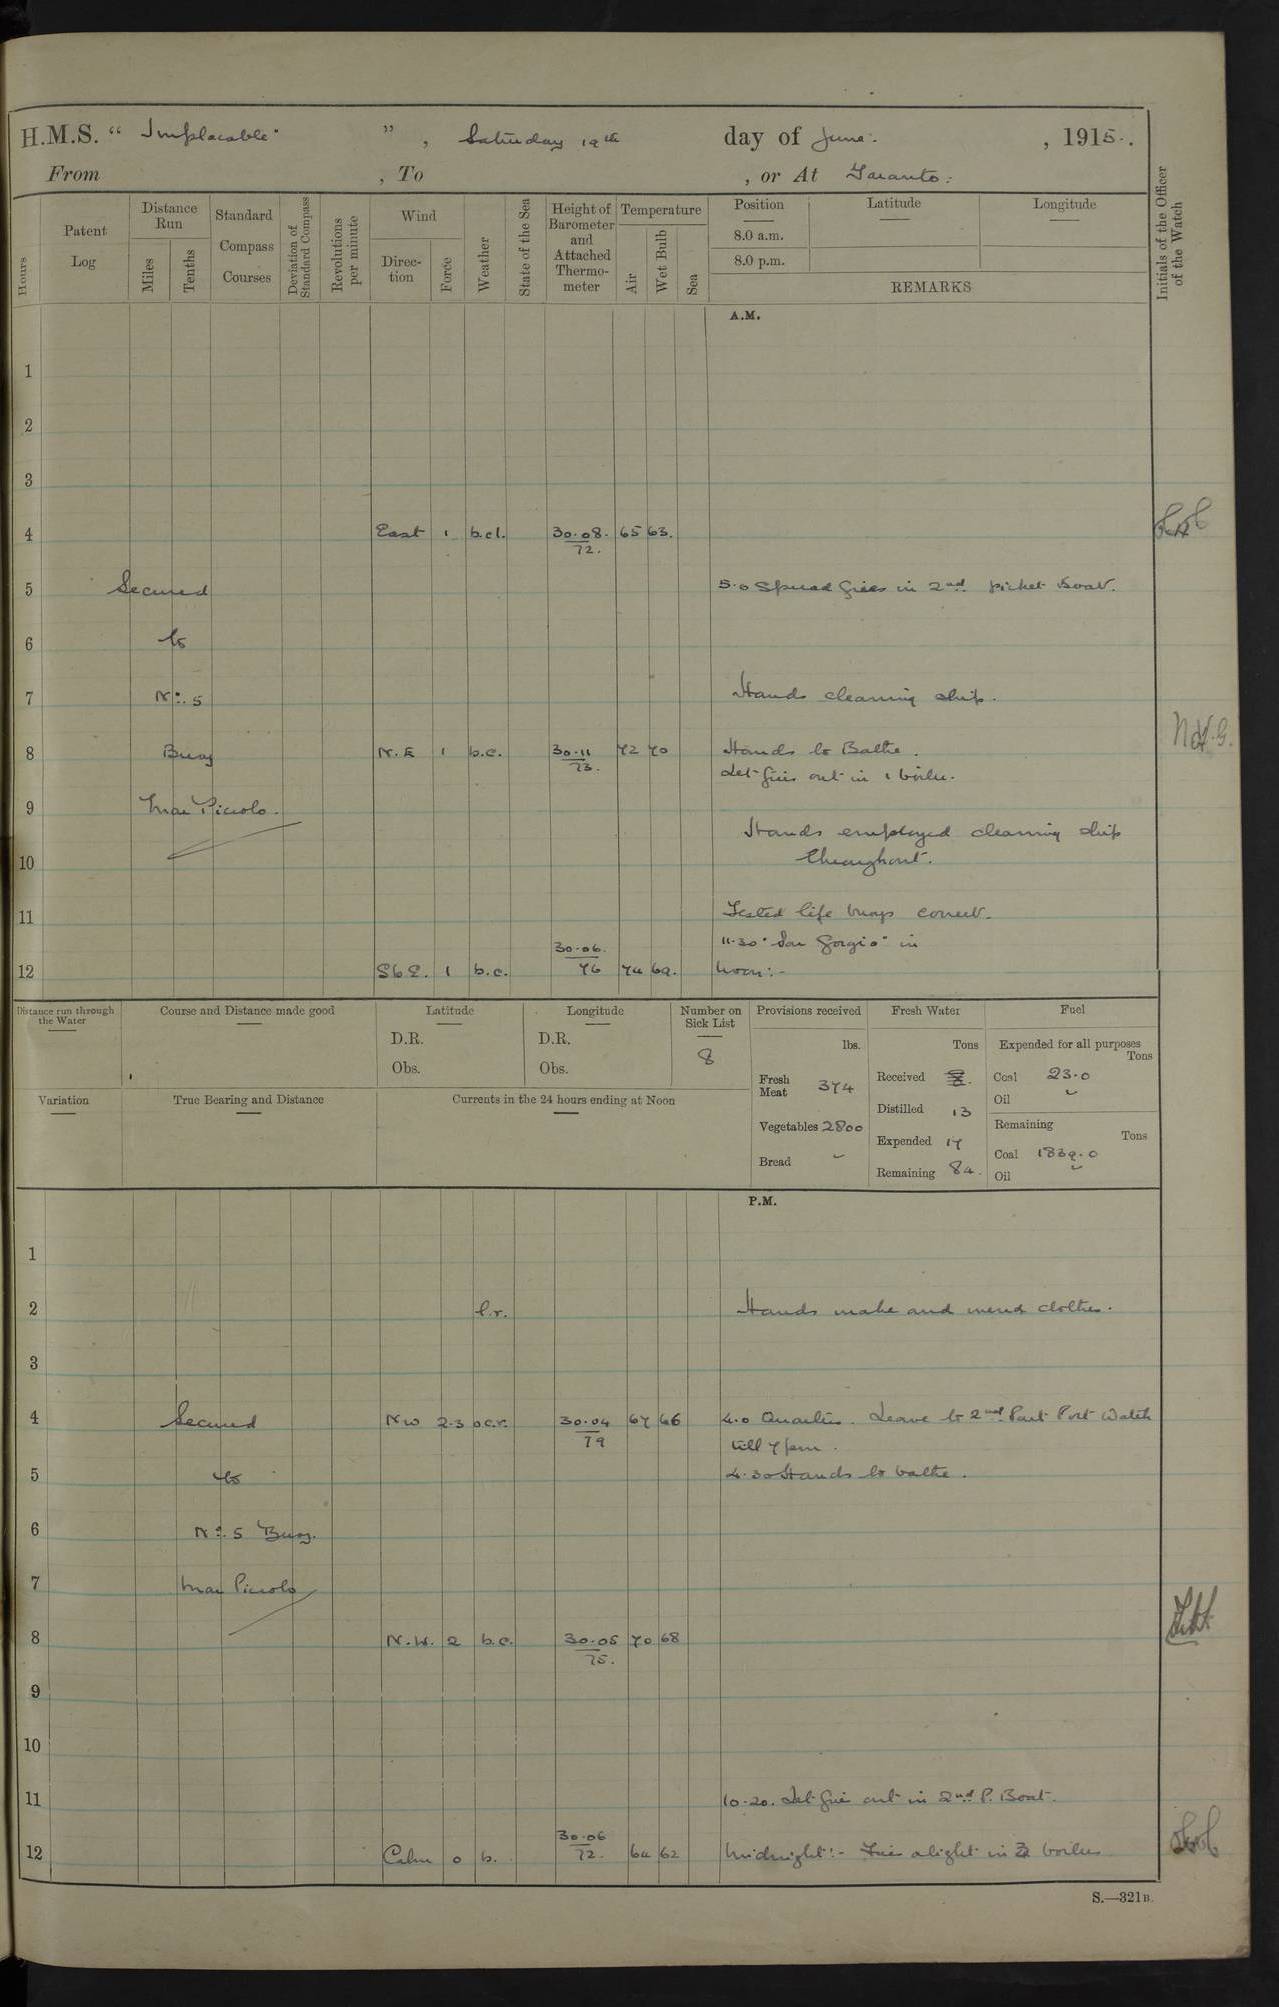 H.M.S. “ Implacable ” , Saturday 19th day of June: , 1915.
From , To , or At Taranto:
Hours
Patent Log
Distance Run
Miles
Tenths
Standard Compass Courses
Deviation of Standard Compass
Revolutions per minute
Wind
Direction
Force
Weather
State of the Sea
Height of Barometer and Attached Thermometer
Temperature
Air
Wet Bulb
Sea
Position
8.0 a.m.
8.0 p.m.
Latitude
Longitude
REMARKS
Initials of the Officer of the Watch
A.M.
1
2
3
4 East 1 b.cl. 30.08. 65 63.
72.
5 Secured 5.0 Spread fires in 2nd picket Boat.
6 to
7 No. 5 Hands cleaning ship.
8 Buoy N.E 1 b.c. 30.11 72 70 Hands to Bathe.
73. Let fires out in 1 boiler.
9 Mar Piccolo.
Hands employed cleaning ship
10 throughout.
11 Tested life buoys correct.
30.06. 11.30 "San Gorgio" in
12 SbE. 1 b.c. 76 74 69. Noon:-
Distance run through the Water
Course and Distance made good
Latitude
D.R.
Obs.
Longitude
D.R.
Obs.
Number on Sick List
8
Provisions received
lbs.
Fresh Meat 374
Vegetables 2800
Bread -
Fresh Water
Tons
Received
Distilled 13
Expended 17
Remaining 84.
Fuel
Expended for all purposes
Tons
Coal 23.0
Oil -
Remaining
Tons
Coal 1839.0
Oil -
Variation
True Bearing and Distance
Currents in the 24 hours ending at Noon
P.M.
1
2 Hands make and mend clothes.
3
4 Secured NW 2.3 o.c.r. 30.04 67 66 4.0 Quarters. Leave to 2nd Part Port Watch
79 till 7pm.
5 to 4.30 Hands to bathe.
6 No. 5 Buoy.
7 Mar Piccolo
8 N.W. 2 b.c. 30.05 70 68
75.
9
10
11 10.20. Let fire out in 2nd P. Boat.
30.06
12 Calm 0 b. 72. 64 62 Midnight:- Fires alight in 3 boilers
S.—321B.